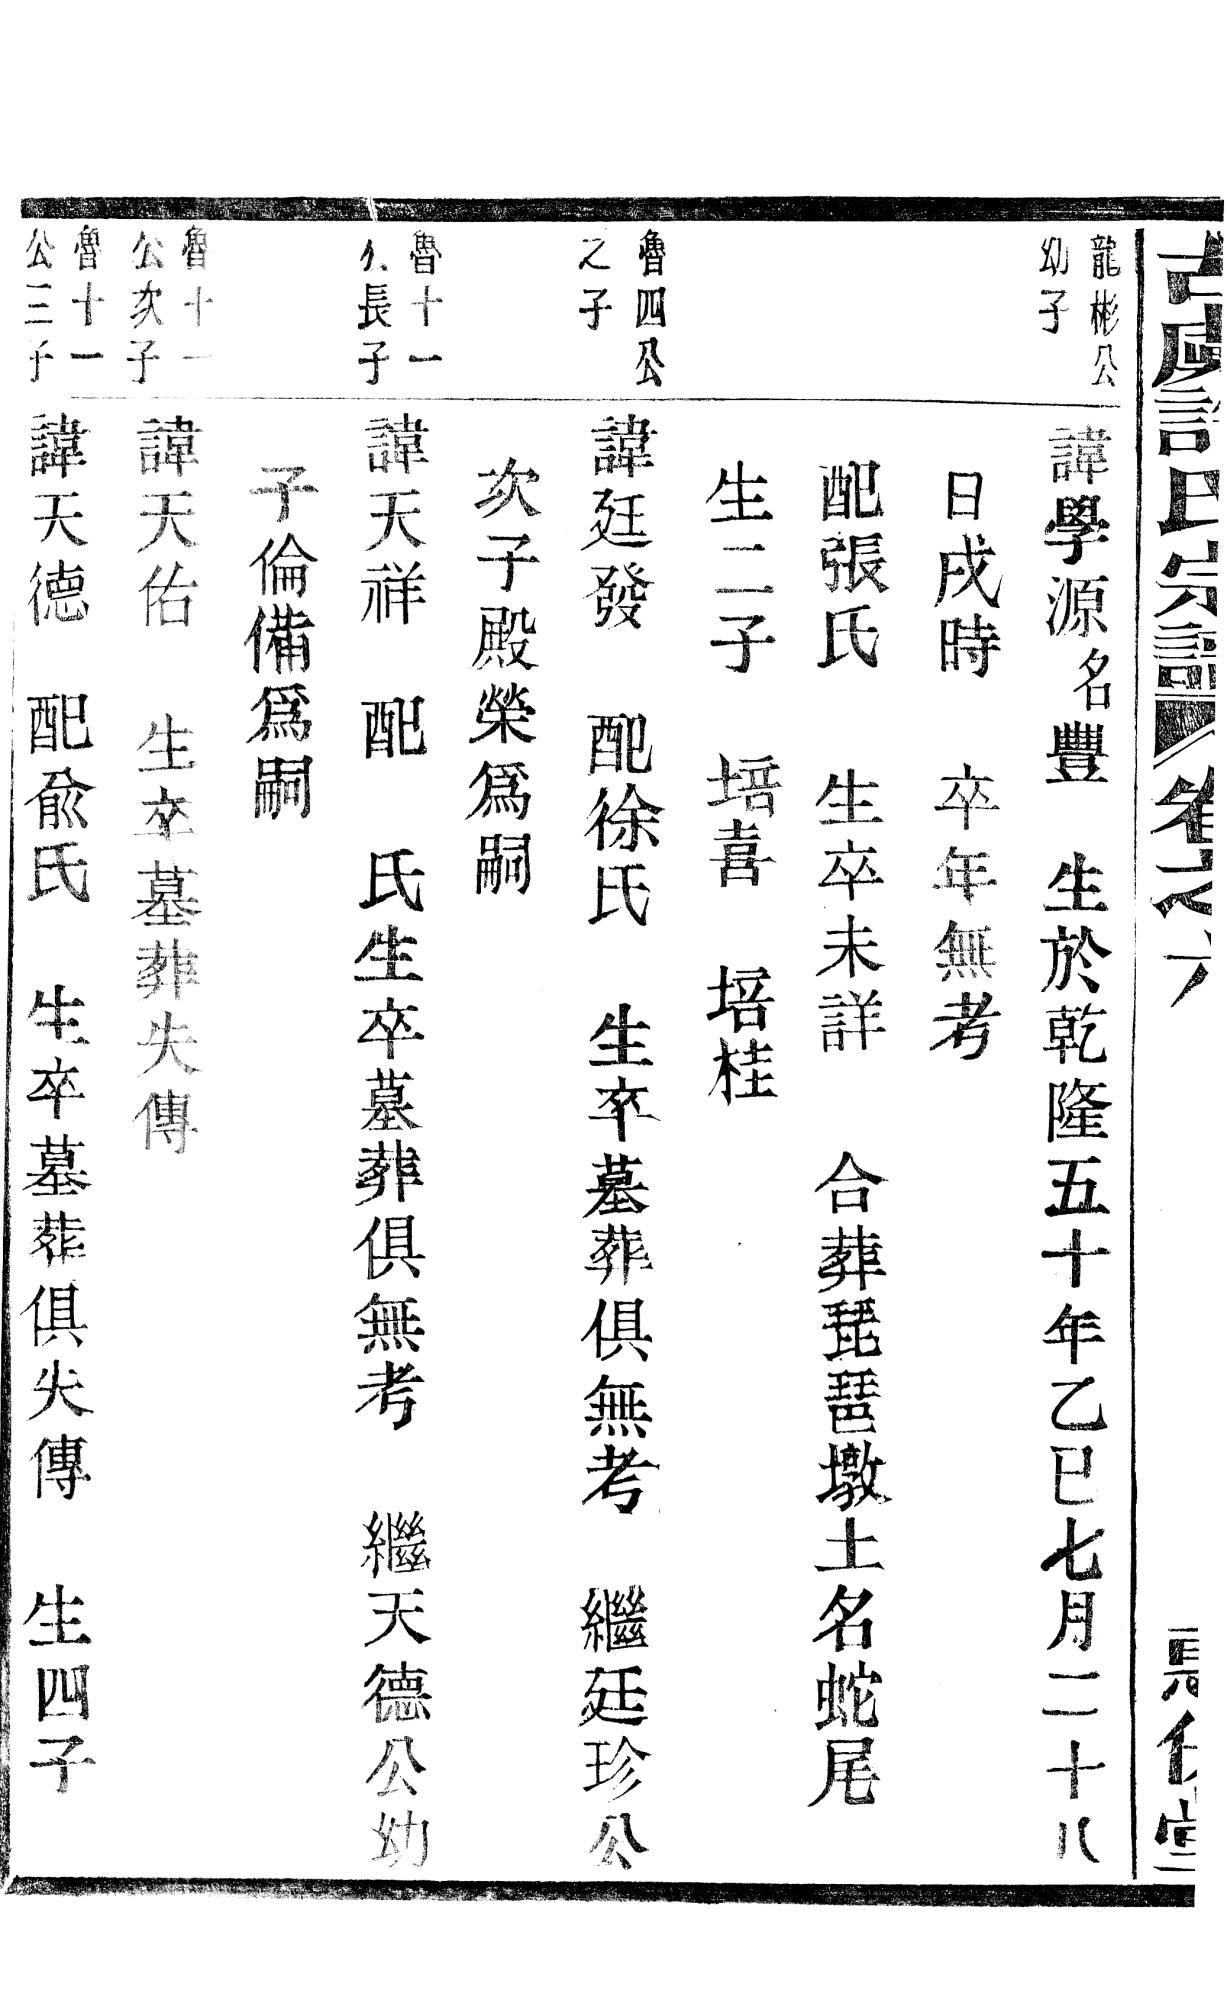 古虞許氏宗譜 卷之六
龍彬公
幼子
諱學源名豐 生於乾隆五十年乙巳七月二十八
日戌時 卒年無考
配張氏 生卒未詳 合葬琵琶墩土名蛇尾
生二子 培喜 培桂
魯四公
之子
諱廷發 配徐氏 生卒墓葬俱無考 繼廷珍公
次子殿榮爲嗣
魯十一
公長子
諱天祥 配 氏生卒墓葬俱無考 繼天德公幼
子倫備爲嗣
魯十一
公次子
諱天佑 生卒墓葬失傳
魯十一
公三子
諱天德 配兪氏 生卒墓葬俱失傳 生四子